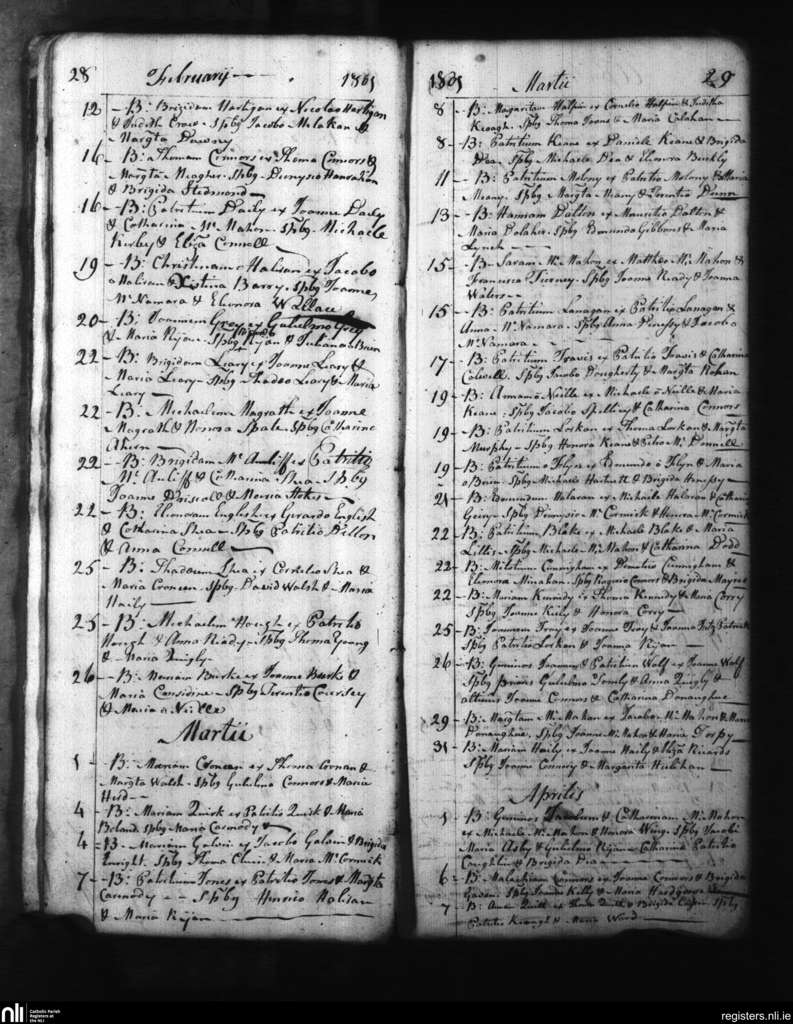 28 Februarij 1805
12 - B: Brigidam Hartigan ex Nicolao Hartigan
& Judith Crow - Spbg Jacobo McLakan &
Margta Dawory
16 - B: a Thomam Connors ex Thoma Connors &
Margta Meagher - Spbg - Dionysio Hanrahan
& Brigida Stedmond
16 - B: Patritium Daily ex Joanne Daily
& Catharina Mc Mahon - Spbg - Michaele
Kirby & Eliza Connell
19 - B: Christinam o Halisan ex Jacobo
o Halisan & Xistina Barry - Spbg Joanne
Mc Namara & Elenora Wallace
20 - B: Joannem Grey ex Gulielmo Grey
& Maria Ryan - Spbg Ryan & Juliana o Brien
22 - B: Brigidam Leary ex Joanne Leary &
Maria Leary - Spbg Thadeo Leary & Maria
Leary
22 - B: Michaelem Magrath ex Joanne
Magrath & Honora Spale - Spbg Catharine
Ahern
22 - B: Brigidam Mc Auliff ex Patritio
Mc Auliff & Catharina Shea - Spbg
Joanne Driscoll & Maria Stokes
22 - B: Elenoram English ex Gerardo English
& Catharina Shea - Spbg Patritio Dillon
& Anna Connell
25 - B: Thadeum Shea ex Cornelio Shea &
Maria Cooneen - Spbg - David Walsh & Maria
Haily
25 - B: Michaelem Hough ex Patritio
Hough & Anna Ready - Spbg Thoma Young
& Maria Quigly
26 - B: Mariam Burke ex Joanne Burke &
Maria Considine - Spbg Terentio Coursey
& Maria o Neille
Martii
1 - B: Mariam Cooneen ex Thoma Coonan &
Margta Walsh - Spbg Gulielmo Connors & Maria
Hurd
4 - B: Mariam Quirk ex Patritio Quirk & Maria
Boland Spbg Maria Carmody
4 - B: Mariam Galvin ex Jacobo Galvin & Brigida
Enright. Spbg Thoma Clune & Maria Mc Cormick
7 - B: Patritium Jones ex Patritio Jones & Margta
Carmody - Spbg Henrico Halisan
& Maria Ryan
1805 Martii 29
8 - B: Margaritam Halpin ex Cornelio Halpin & Juditha
Keough. Spbg Thoma Toone & Maria Calahan
8 - B: Patritium Keane ex Daniele Keane & Brigida
Dea. Spbg Michaele Dea & Elenora Buckly
11 - B: Patritium Molony ex Patritio Molony & Maria
Meany. Spbg Margta Meany & Terentio Dunn
13 - B: Hanniam Dalton ex Mauritio Dalton &
Maria Dolaher. Spbg Edmundo Gibbons & Maria
Lynch
15 - B: Saram Mc Mahon ex Mattheo Mc Mahon &
Francisca Tierney. Spbg Joanne Ready & Joanna
Waters
15 - B: Patritium Lanagan ex Patritio Lanagan &
Anna Mc Namara - Spbg Anna Henessy & Jacobo
Mc Namara
17 - B: Patritium Travis ex Patritio Travis & Catharina
Colwell. Spbg Jacobo Dougherty & Margta Rohan
19 - B: Annam o Neille ex Michaele o Neille & Maria
Keane. Spbg Jacobo Spillesy & Catharina Connors
19 - B: Patritium Lorkan ex Thoma Lorkan & Margta
Murphy - Spbg Honora Keane & Petro Mc Donnell
19 - B: Patritium o Flyn ex Edmundo o Flyn & Maria
o Brien. Spbg Michaele Hartnett & Brigida Henessy
21 - B: Edmundum Haloran ex Michaele Haloran & Catharina
Geiry - Spbg Dionysio Mc Cormick & Honora Mc Cormick
22 - B: Patritium Blake ex Michaele Blake & Maria
Lillis - Spbg Michaele Mc Mahon & Catharina Dodd
22 - B: Cunnighan ex Demetrio Cunnigham &
Elenora Minahan. Spbg Rogerio Connors & Brigida Maynes
22 - B: Mariam Kennedy ex Thoma Kennedy & Maria Correy
Spbg Joanne Kiely & Honora Correy
25 - B: Joannem Troy ex Joanne Troy & Joanna Fitz Patrick
Spbg Patritio Lorkan & Joanna Ryan
26 - B: Geminos Joannem & Patritium Wolf ex Joanne Wolf
Spbg Prioris Gulielmo Tomly & Anna Quigly &
alterius Joanne Connors & Catharina Donaughue
29 - B: Margtam Mc Mahon ex Jacobo Mc Mahon & Maria
Donaughue. Spbg Joanne Mc Mahon & Maria Torpy
31 - B: Mariam Haily ex Joanne Haily & Eliza Ricards
Spbg Joanne Conway & Margarita Hulihan
Aprilis
1 - B: Geminos Jacobum & Catharinam Mc Mahon
ex Michaele Mc Mahon & Honora Wing. Spbg Jacobi
Maria Asby & Gulielmo Ryan Catharina Patritio
Caughlin & Brigida Dea
6 - B: Malachiam Connors ex Joanne Connors & Brigida
Gavan. Spbg Jacobo Kelly & Maria Hardgrove
7 - B: Anna Quill ex Quill & Brigida Spbg
Patritio Keough & Maria Ward
nli
Catholic Parish
Registers at
the NLI
registers.nli.ie